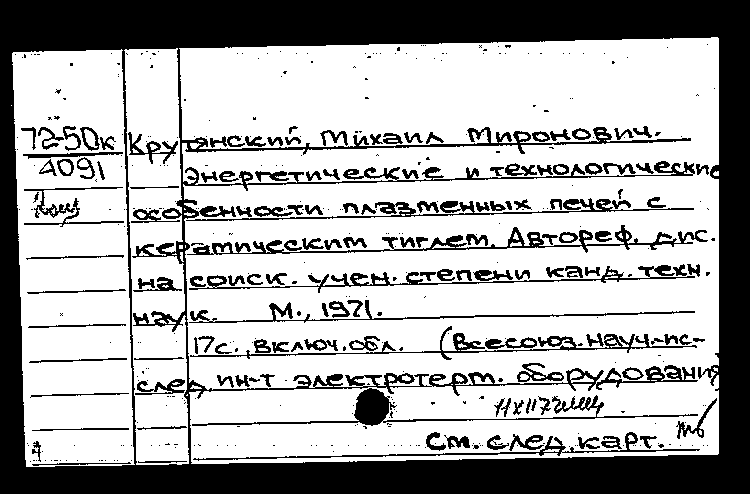 72-50к Крутянский, Михаил Миронович.
4091 Энергетические и технологические
особенности плазменных печей с
керамическим тиглем. Автореф. дис.
на соиск. учен. степени канд. техн.
наук. М., 1971.
17с., включ. обл. (Всесоюз. науч.-ис-
след. ин-т электротерм. оборудования
См. след. карт.